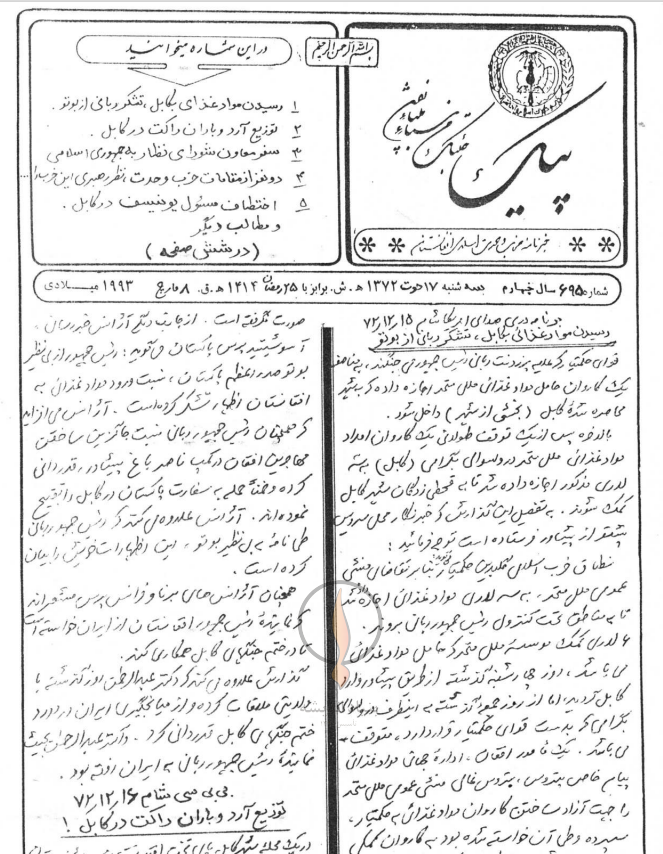 بسم الله الرحمن الرحیم
در این شماره میخوانید
۱ رسیدن مواد غذای بکابل، تشکر ربانی از بوتو.
۲ توزیع آرد و باران راکت در کابل.
۳ سفر معاون شورای نظار به جمهوری اسلامی
۴ دو نفر از مقامات حزب وحدت، نظر رهبری این حزب را...
۵ اختطاف مسئول یونیسف در کابل.
و مطالب دیگر
(در شش صفحه)
پیک
خبرنامه
اسلامی افغانستان
شماره ۶۹۵ سال چهارم سه شنبه ۱۷ حوت ۱۳۷۲ ه. ش. برابر با ۲۵ رمضان ۱۴۱۴ ه. ق. ۸ مارچ ۱۹۹۳ میلادی
برنامه دری صدای امریکا شام ۷۲٫۱۲٫۱۵
رسیدن مواد غذائی بکابل، تشکر ربانی از بوتو
قوای حکمتیار که علیه برزدنت ربانی رئیس جمهوری میجنگند،
یک کاروان حامل مواد غذائی ملل متحد اجازه داده که به شهر
محاصره شدهٔ کابل (بخشی از شهر) داخل شود.
بالاخره پس از یک توقف طولانی یک کاروان امداد
مواد غذائی ملل متحد در ولسوالی بگرامی (کابل) به سه
لاری مذکور اجازه داده شد تا به قحطی زدگان شهر کابل
کمک شوند. به تفصیل این گزارش که خبرنگار محلی سرویس
پشتو از پشاور فرستاده است توجه فرمائید:
نطاق حزب اسلامی گلبدین حکمتیار بنا بر تقاضای منشی
عمومی ملل متحد، به سه لاری مواد غذائی اجازه داده شد
تا به مناطق تحت کنترول رئیس جمهور ربانی برود.
۶ لاری کمک موسسه ملل متحد که حامل مواد غذائی
می باشد، روز چهارشنبه گذشته از طریق پشاور وارد
کابل گردید، اما از روز جمعه گذشته به اینطرف در ولسوالی
بگرامی که بدست قوای حکمتیار قرار دارد، متوقف
می باشد. یک مامور افغان، اداره جهانی مواد غذائی
پیام خاص پطروس، پطروس غالی منشی عمومی ملل متحد
را جهت آزاد ساختن کاروان مواد غذائی به حکمتیار،
سپرده و طی آن خواسته شده بود به کاروان کمکی
صورت نگرفته است. از جانب دیگر آژانس خبر رسانی
آسوشیتید پرس پاکستان می گوید: رئیس جمهور از بی نظیر
بوتو صدراعظم پاکستان، نسبت ورود مواد غذائی به
افغانستان اظهار تشکر کرده است. آژانس می افزاید
که همچنان رئیس جمهور ربانی نسبت جاگزین ساختن
مهاجرین افغان در کمپ ناصر باغ پشاور قدردانی
کرده و ضمناً حمله به سفارت پاکستان در کابل را تقبیح
نموده اند. آژانس علاوه می کند که رئیس جمهور ربانی
طی نامهٔ به بی نظیر بوتو، این اظهارات خویش را بیان
کرده است.
همچنان آژانس های ایرنا و فرانس پرس مشعر اند
که نمایندهٔ رئیس جمهور افغانستان از ایران خواسته است
تا در ختم جنگهای کابل همکاری کند.
گزارش علاوه می کند که دکتر عبدالرحمن روز گذشته با
ولایتی ملاقات کرده و از میانجگیری ایران در مورد
ختم جنگهای کابل قدردانی کرد. داکتر عبدالرحمن بحیث
نمایندهٔ رئیس جمهور ربانی به ایران رفته بود.
بی بی سی شام ۷۲٫۱۲٫۱۶
توزیع آرد و باران راکت در کابل!